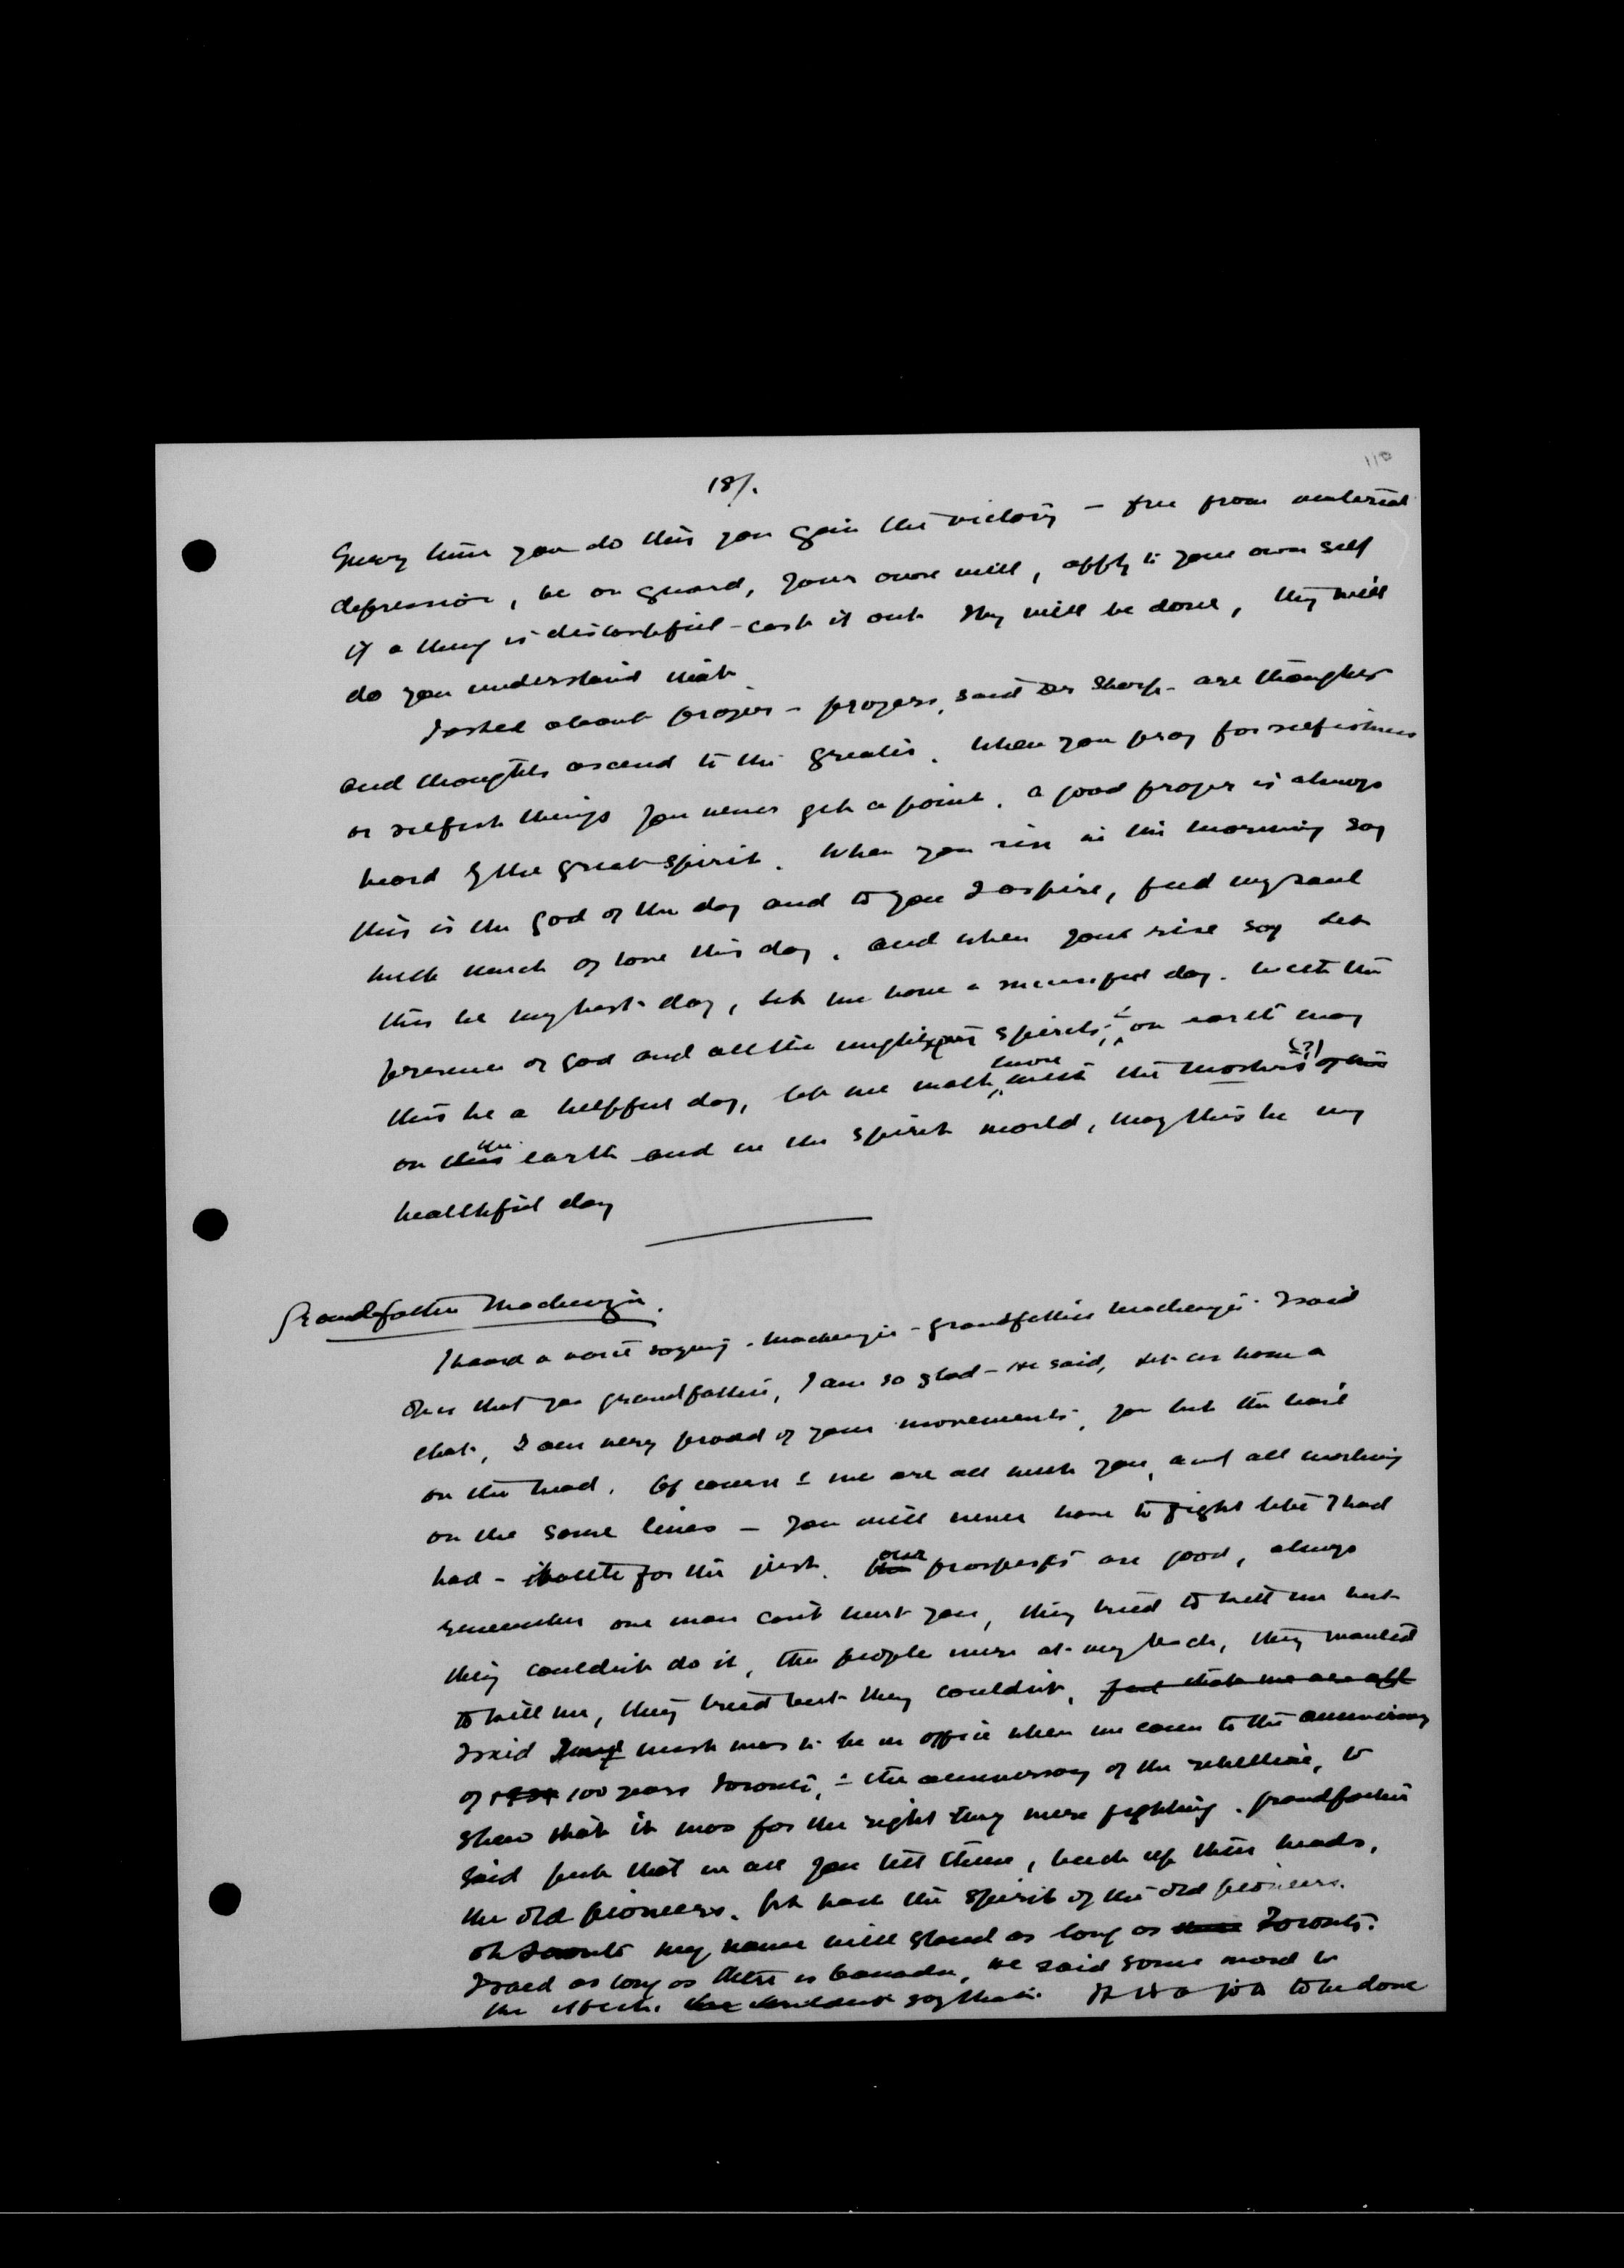 18/.
110
Every time you do this you gain the victory – free from material
depression, be on guard, your own will, apply to your own self
if a thing is distasteful – cast it out Thy will be done, thy will
do you understand that
I asked about prayers – prayers, said Dr Sharp – are thoughts
and thoughts ascend to the greater. When you pray for selfishness
or selfish things you never get a point. A good prayer is always
heard by the great spirit. When you rise in the morning say
this is the God of the day and to you I aspire, feed my soul
with much of love this day. And when you rise say let
this be my best day, let me have a successful day. With the
presence of God and all the mighty spirits – on earth may
this be a helpful day, let me walk more with the masters (?)
on the earth and in the spirit world, may this be my
healthful day
Grandfather Mackenzie.
I heard a voice saying – Mackenzie – Grandfather Mackenzie. I said
Oh is that you grandfather, I am so glad – He said, let us have a
chat, I am very proud of your movements, you hit the nail
on the head. Of course – we are all with you, and all working
on the same lines – you will never have to fight like I had
had – battle for the just. our prospects are good, always
remember one man can't hurt you, they tried to kill me but
they couldn't do it, the people were at my back, they wanted
to kill me, they tried but they couldn't. feel that we are all
I said my wish was to be in office when we came to the anniversary
of 100 years Toronto, – the anniversary of the rebellion, to
show that it was for the right they were fighting. Grandfather
said put that in all you tell them, back up their heads,
the old pioneers. the spirit of the old pioneers.
oh my name will stand as long as Toronto.
I said as long as there is Canada, he said some word to
the effect. wouldn't say that. It is a job to be done